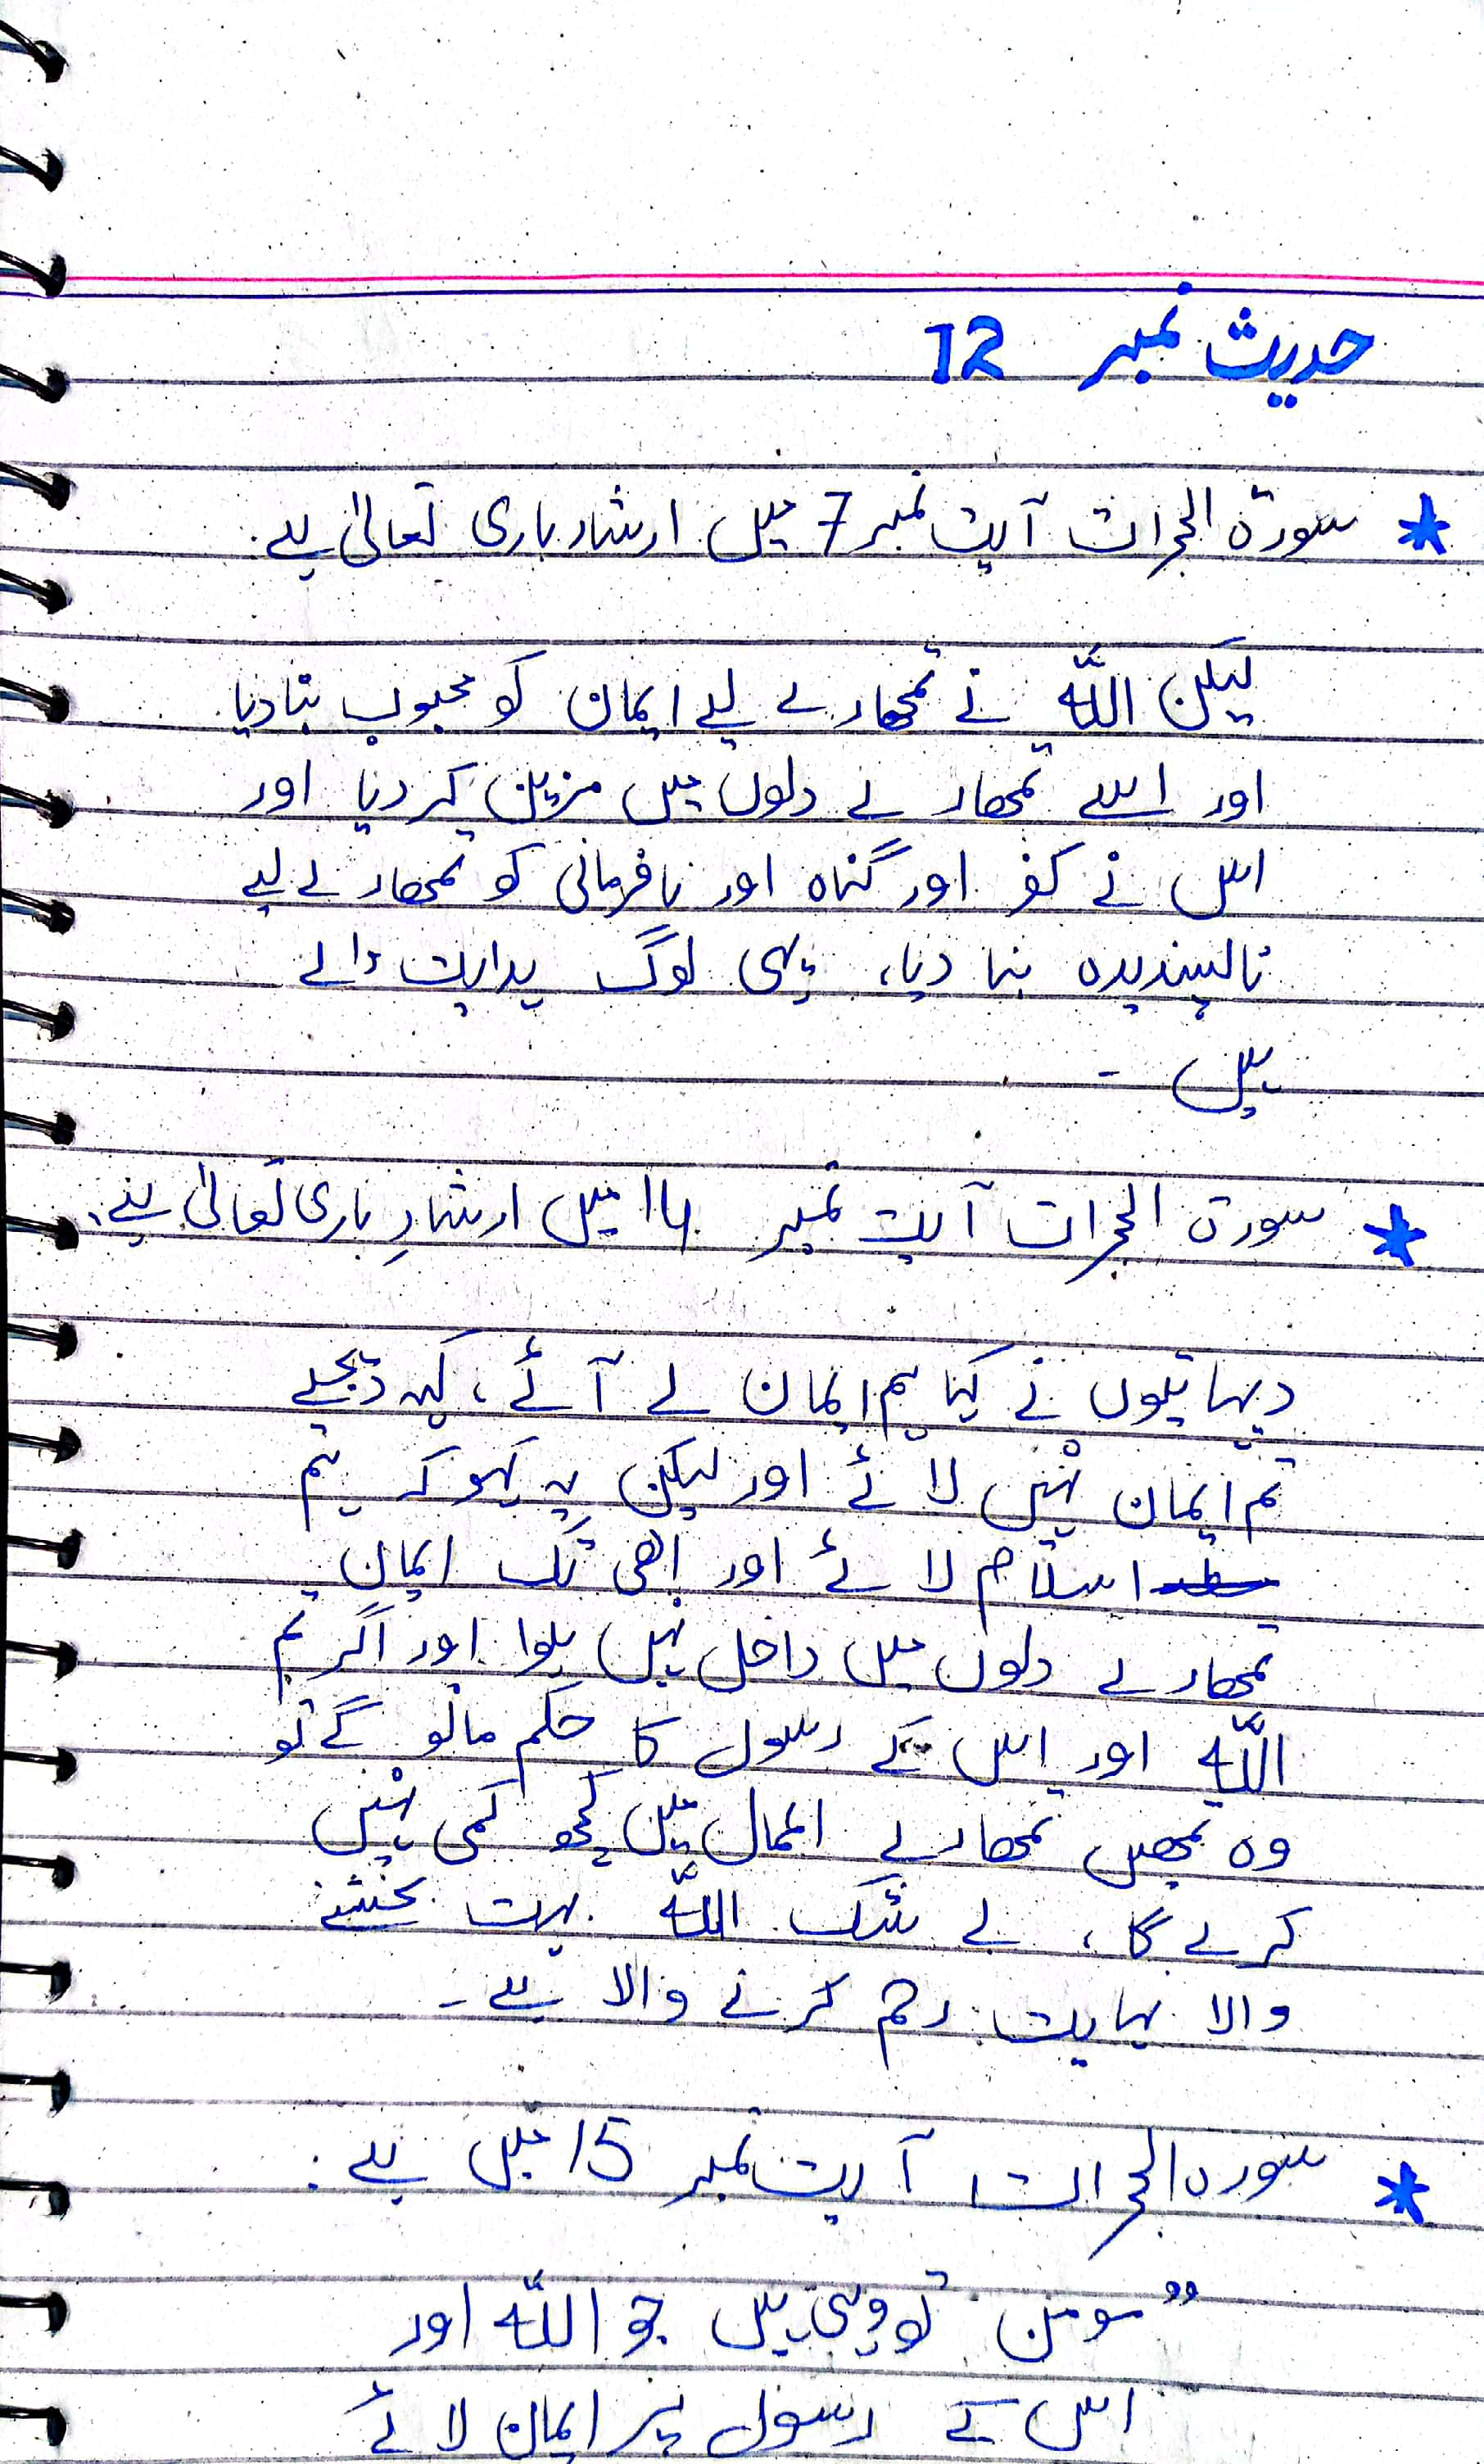 حدیث نمبر 12
* سورۃ الحجرات آیت نمبر 7 میں ارشاد باری تعالیٰ ہے۔
لیکن اللّٰہ نے تمھارے لیے ایمان کو محبوب بنا دیا
اور اسے تمھارے دلوں میں مزین کر دیا اور
اس نے کفر اور گناہ اور نافرمانی کو تمھارے لیے
ناپسندیدہ بنا دیا، یہی لوگ ہدایت والے
ہیں ۔
* سورۃ الحجرات آیت نمبر 14 میں ارشادِ باری تعالیٰ ہے۔
دیہاتیوں نے کہا ہم ایمان لے آئے، کہہ دیجیے
تم ایمان نہیں لائے اور لیکن یہ کہو کہ ہم
اسلام لائے اور ابھی تک ایمان
تمھارے دلوں میں داخل نہیں ہوا اور اگر تم
اللّٰہ اور اس کے رسول کا حکم مانو گے تو
وہ تمھیں تمھارے اعمال میں کچھ کمی نہیں
کرے گا، بے شک اللّٰہ بہت بخشنے
والا نہایت رحم کرنے والا ہے۔
* سورہ الحجرات آیت نمبر 15 میں ہے :
"مومن تو وہی ہیں جو اللّٰہ اور
اس کے رسول پر ایمان لائے